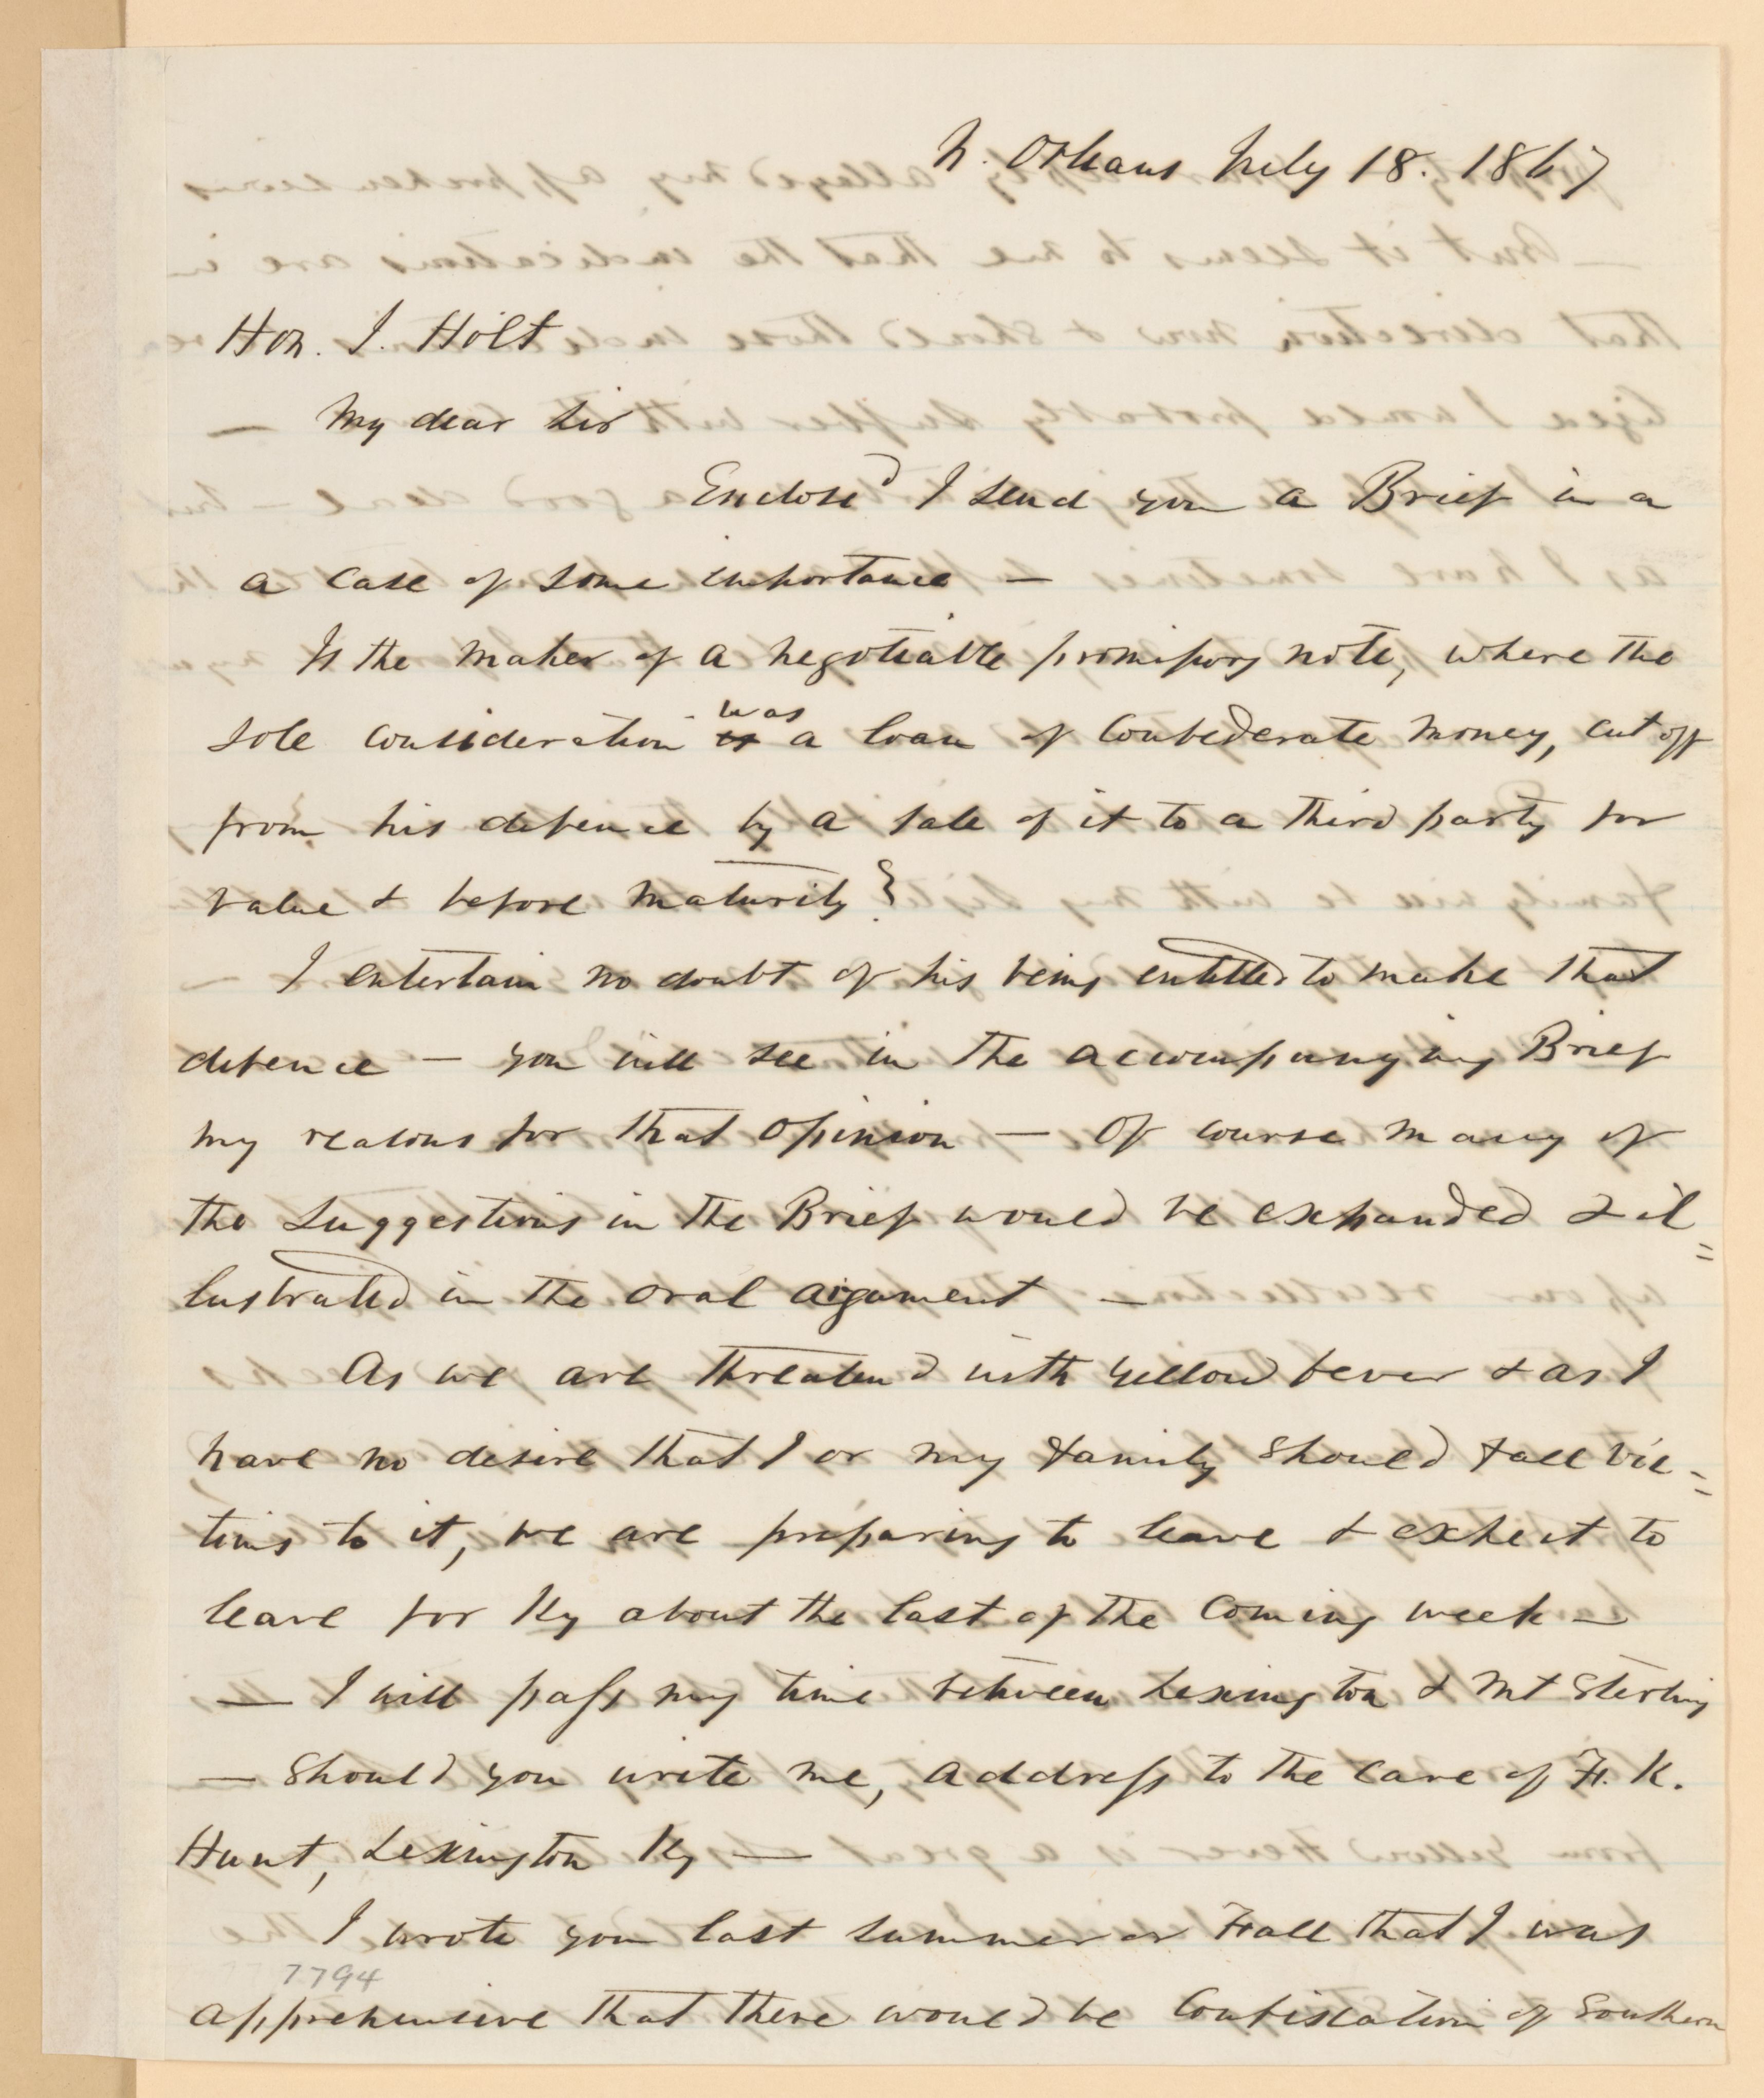 N. Orleans July 18. 1867
Hon. J. Holt
My dear Sir —
Enclosed I send you a Brief in a
a case of some importance —
Is the maker of a negotiable promissory note, where the
sole consideration was a loan of Confederate money, cut off
from his defence by a sale of it to a third party for
value & before maturity?
— I entertain no doubt of his being entitled to make that
defence — you will see in the accompanying Brief
my reasons for that opinion — Of course many of
the suggestions in the Brief would be expanded & il=
lustrated in the oral argument —
As we are threatened with yellow fever & as I
have no desire that I or my family should fall vic=
tims to it, we are preparing to leave & expect to
leave for Ky about the last of the coming week —
— I will pass my time between Lexington & Mt Sterling
— Should you write me, address to the care of F. K.
Hunt, Lexington Ky —
I wrote you last summer or Fall that I was
7794
apprehensive that there would be Confiscation of Southern